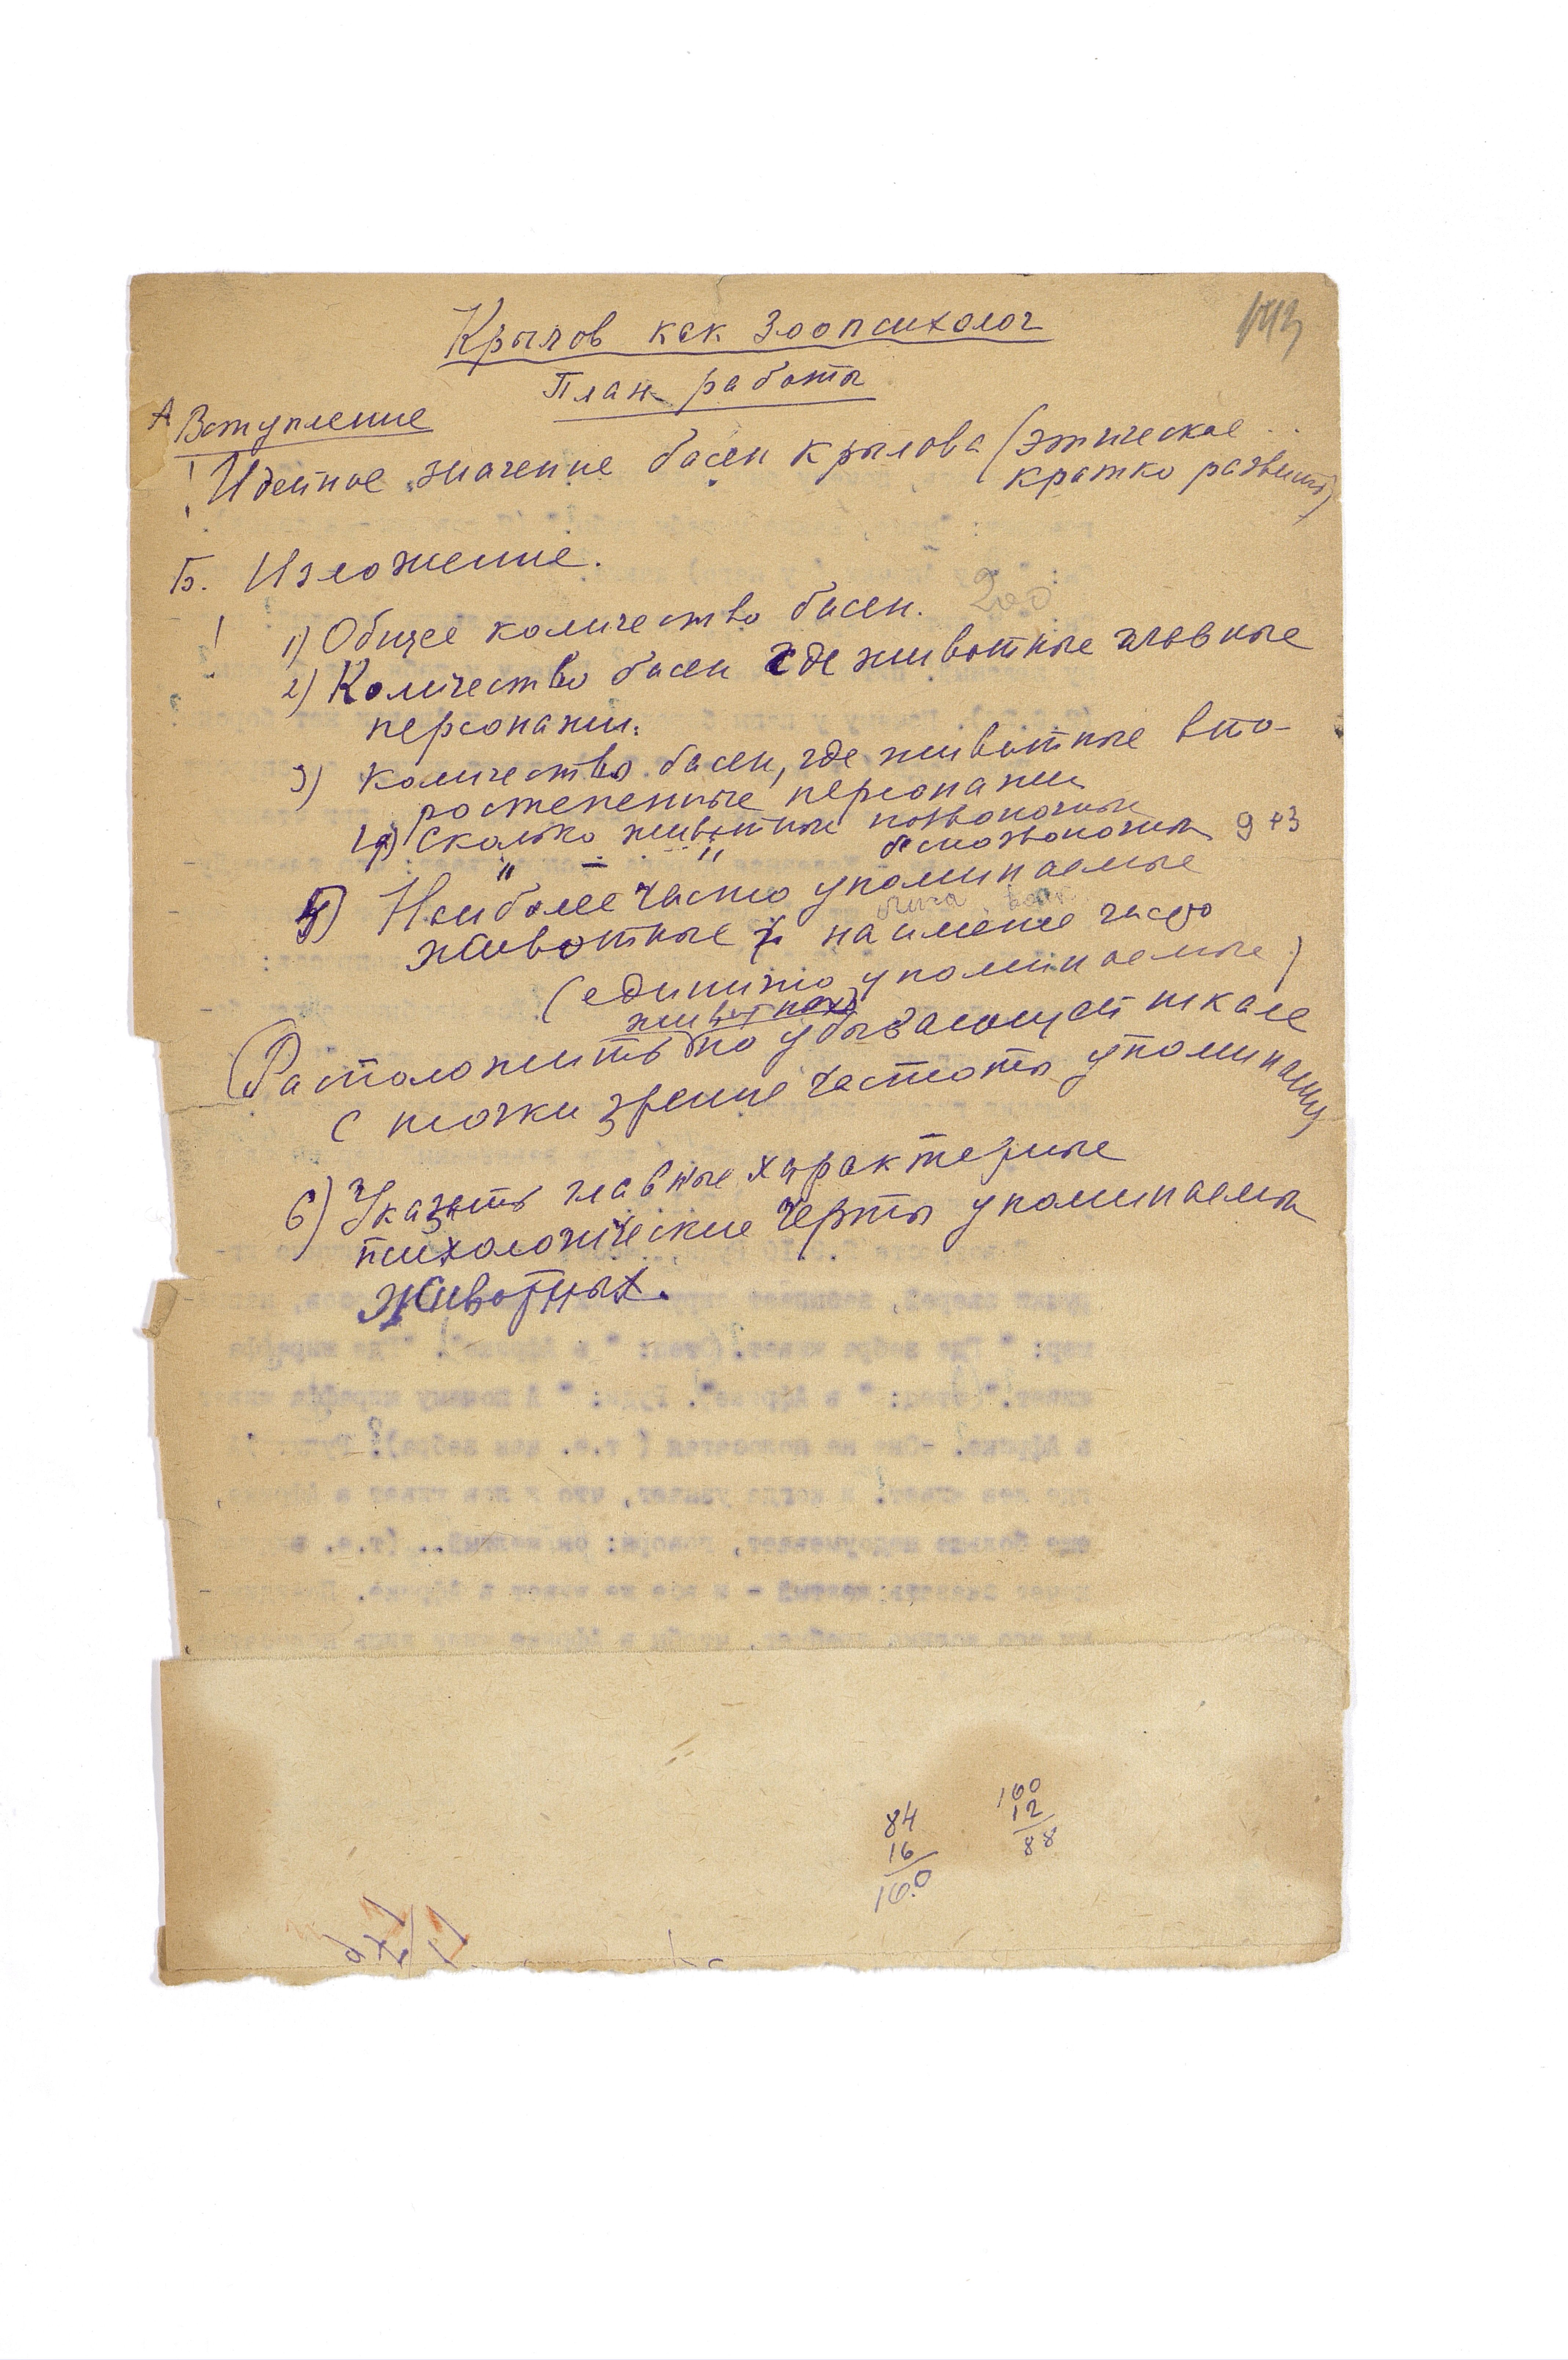 Крылов как зоопсихолог
План работы
А Вступление
! Идейное значение басен Крылова (этическое ..
кратко развить)
Б. Изложение.
! 1) Общее количество басен. 200
2) Количество басен где животные главные
персонажи.
3) Количество басен, где животные вто-
ростепенные персонажи
4) Сколько животных позвоночных
" — " беспозвоночных 9+3
5) Наиболее часто упоминаемые
животные и наименее часто
(единично упоминаемые)
животных
(Расположить по убывающей шкале
с точки зрения частоты упоминания
6) Указать главные характерные
психологические черты упоминаемых
животных.
84
16
100
100
12
88